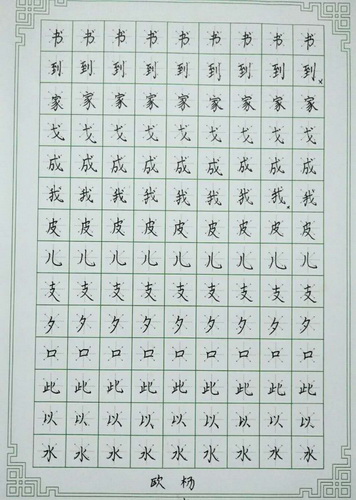 书书书书书书书书书
到到到到到到到到到
家家家家家家家家家
戈戈戈戈戈戈戈戈戈
成成成成成成成成成
我我我我我我我我我
皮皮皮皮皮皮皮皮皮
儿儿儿儿儿儿儿儿儿
支支支支支支支支支
夕夕夕夕夕夕夕夕夕
口口口口口口口口口
此此此此此此此此此
以以以以以以以以以
水水水水水水水水水
欧 杨